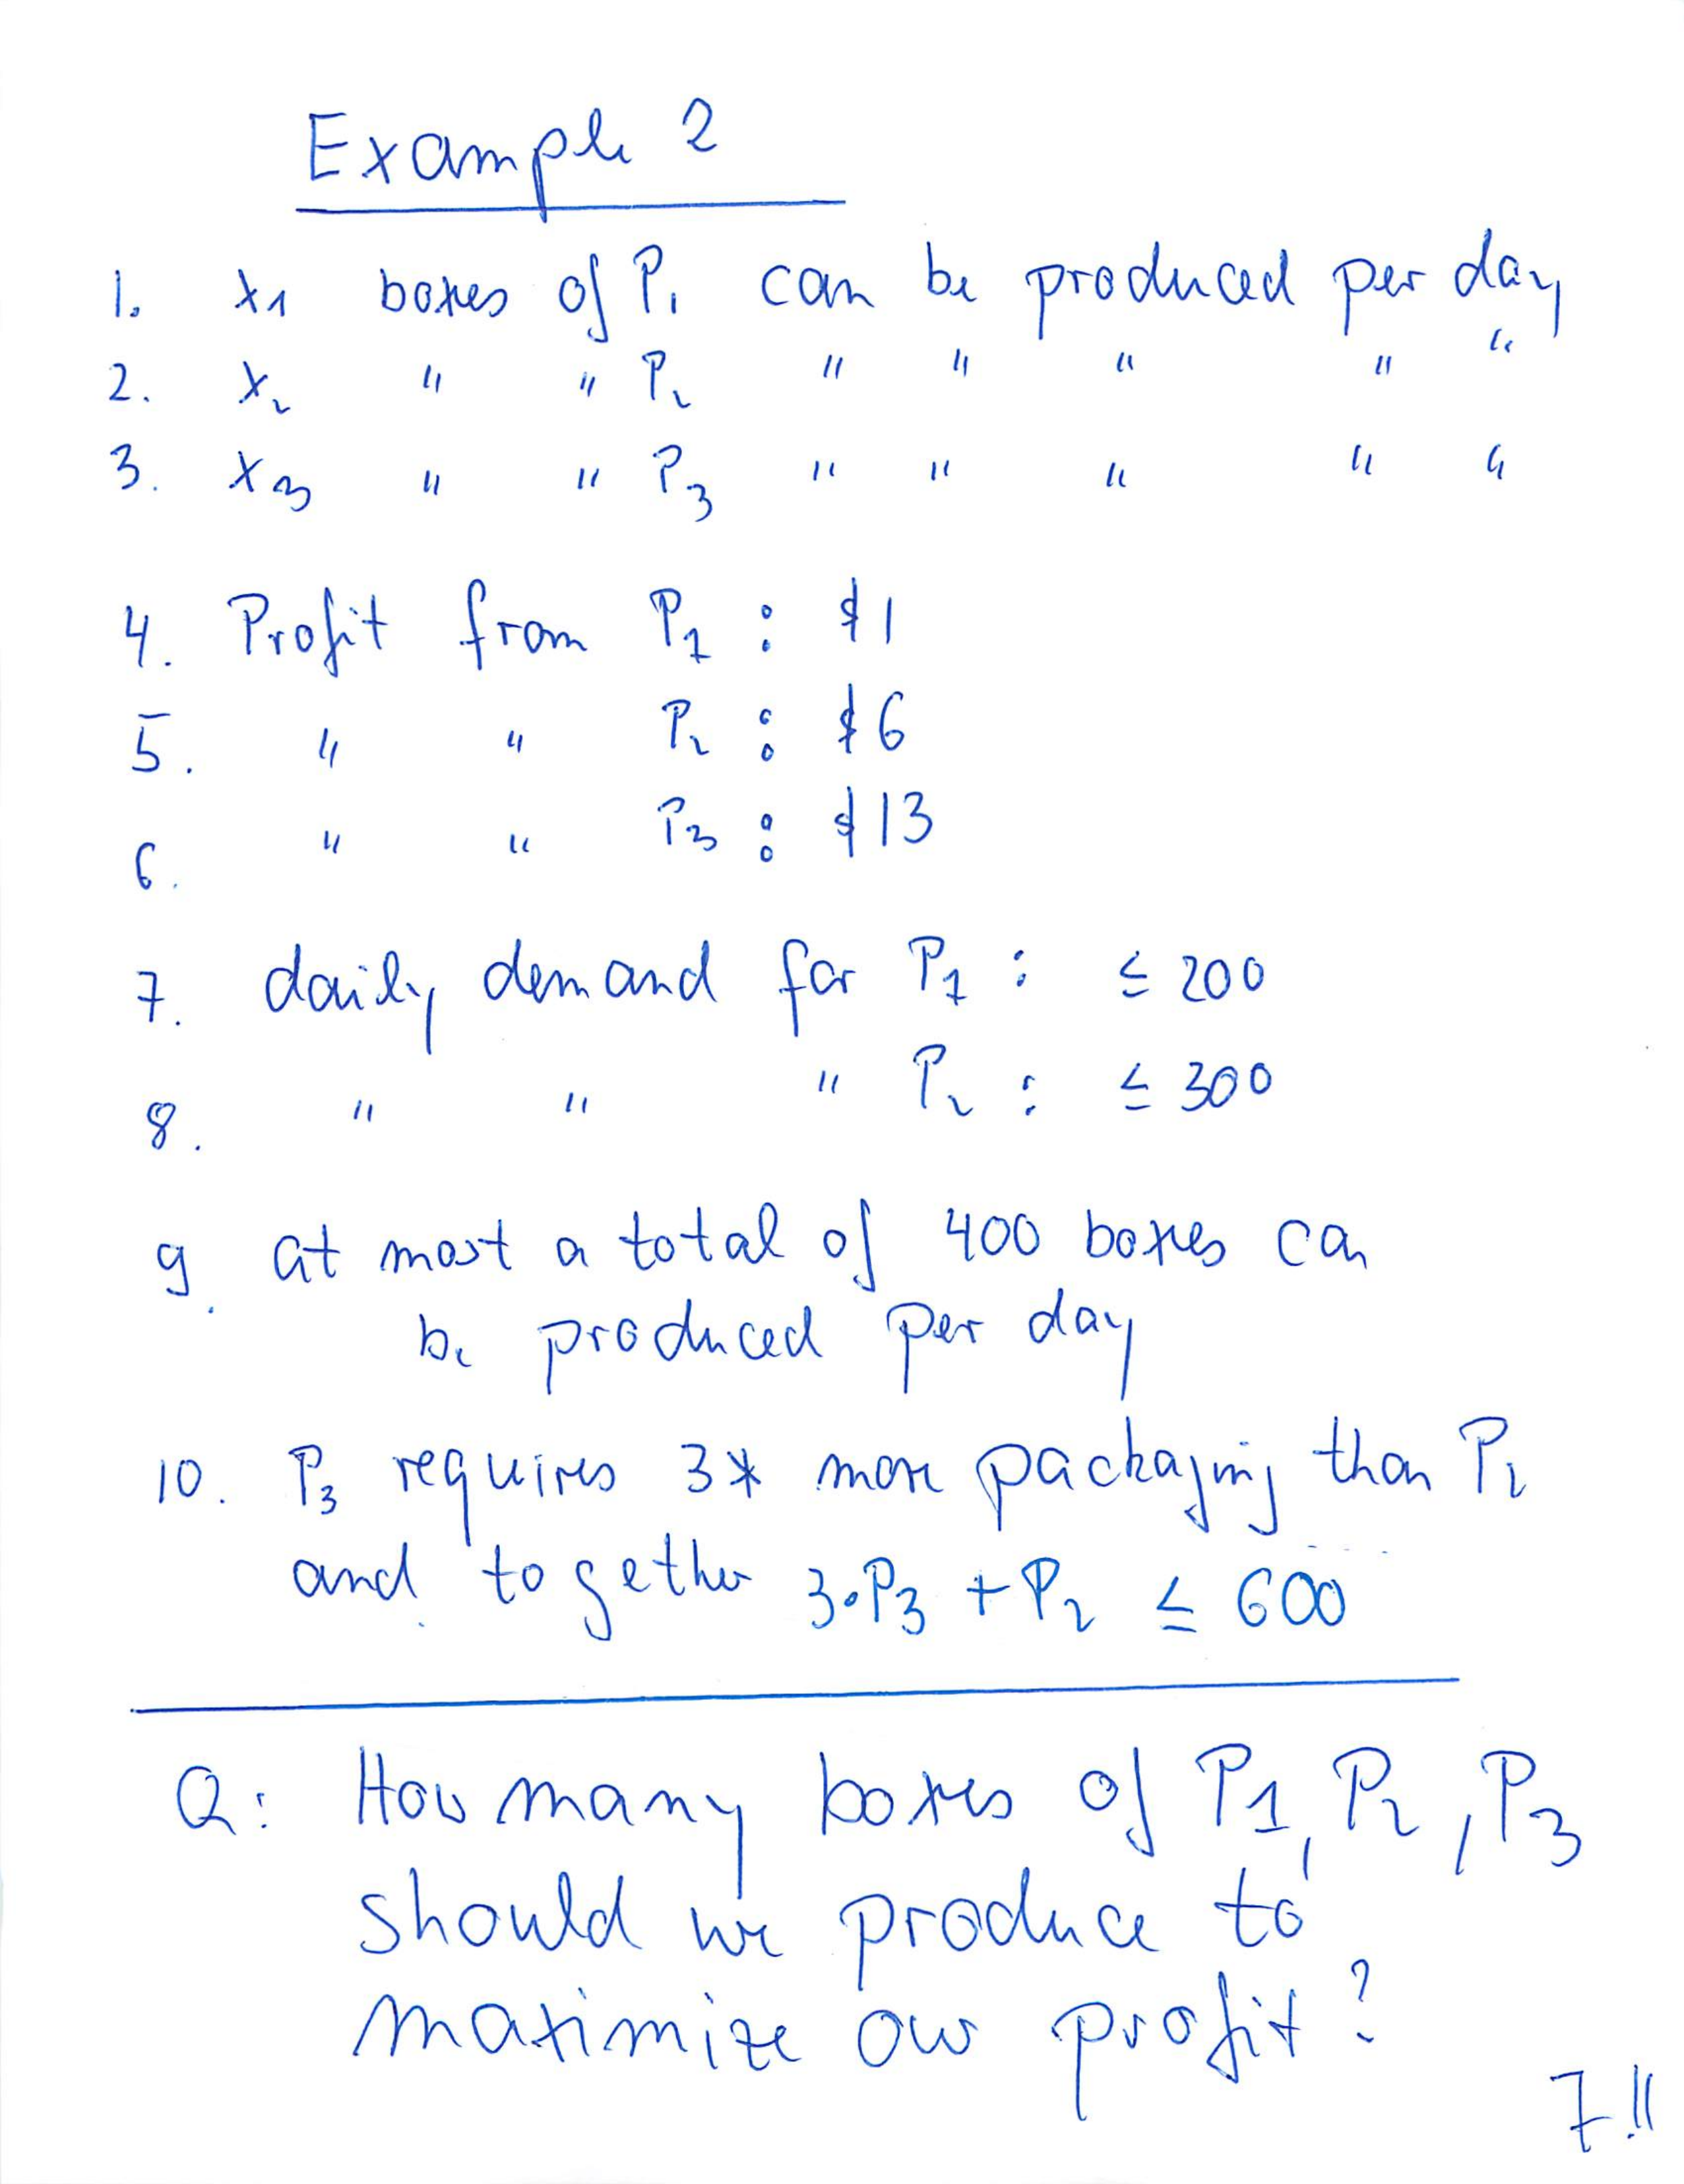 Example 2
1. x1 boxes of P1 can be produced per day
2. x2 " " P2 " " " " "
3. x3 " " P3 " " " " "
4. Profit from P1 : $1
5. " " P2 : $6
6. " " P3 : $13
7. daily demand for P1 : ≤ 200
8. " " " P2 : ≤ 300
9. at most a total of 400 boxes can
be produced per day
10. P3 requires 3* more packaging than P2
and together 3·P3 + P2 ≤ 600
Q: How many boxes of P1, P2, P3
should we produce to
maximize our profit?
7!!